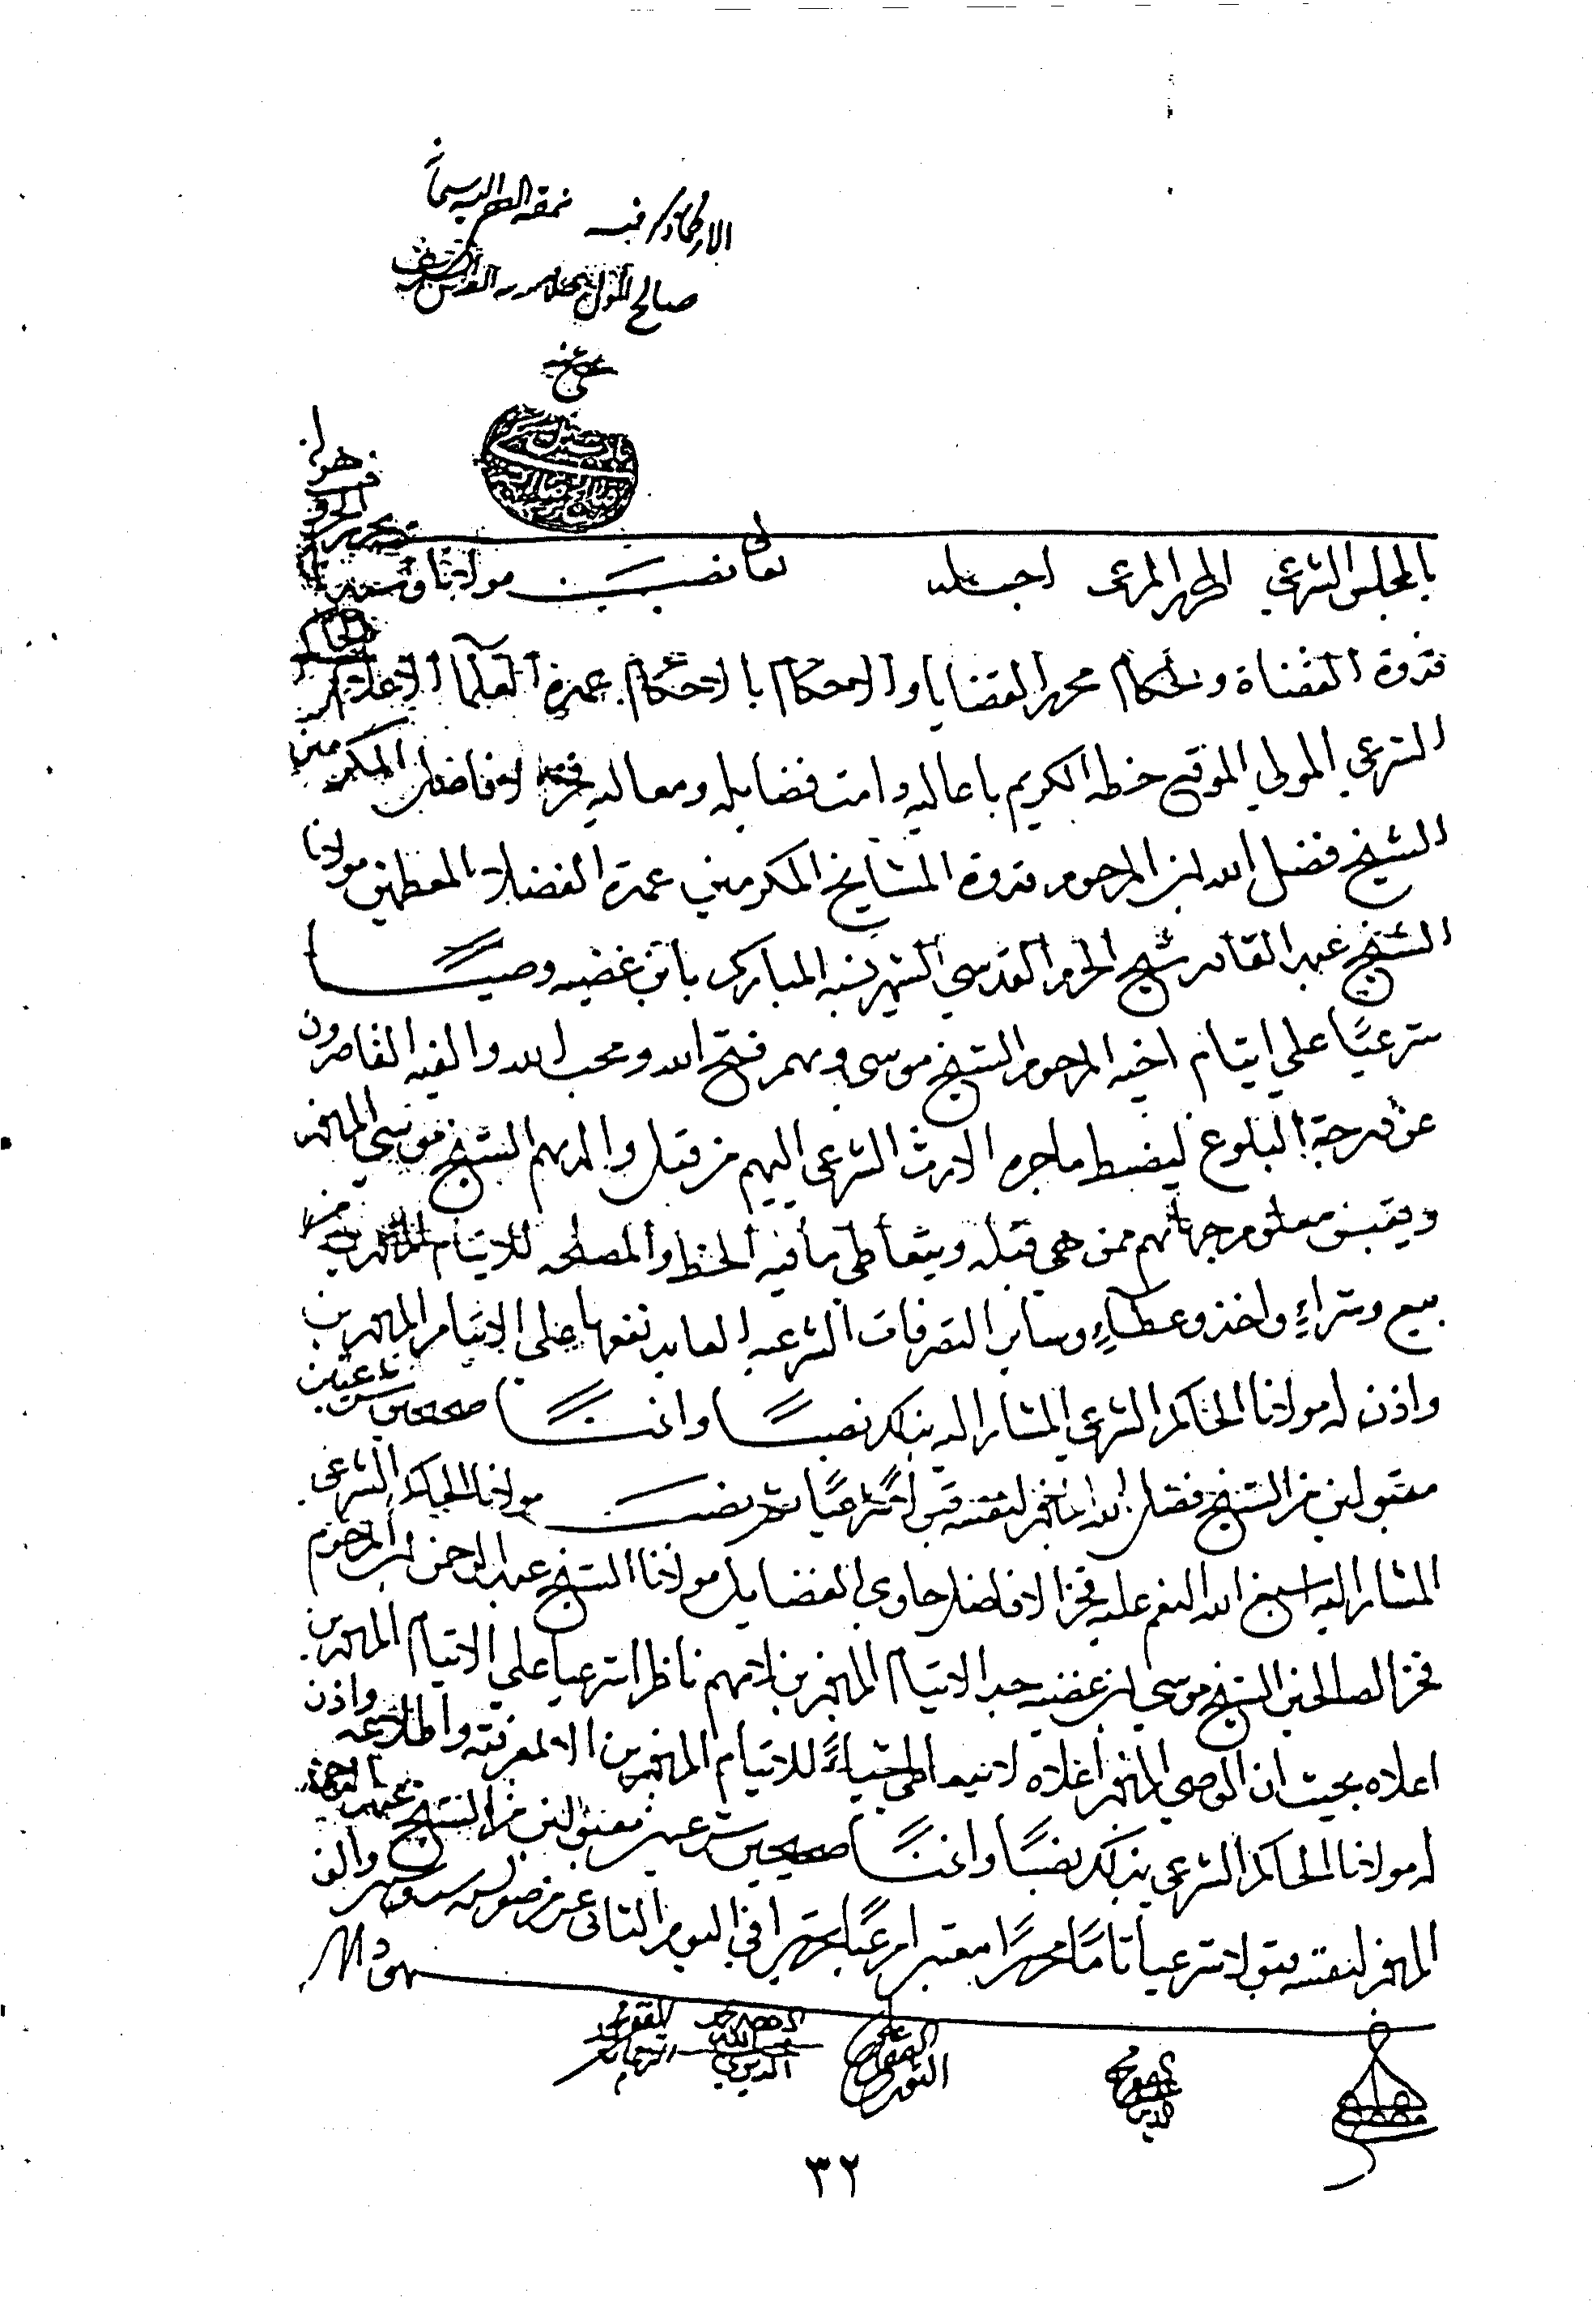 الامر كما ذكر فيه نمقه الفقير اليه سبحانه
صالح المولى بخلافة القدس الشريف
عفي عنه
بالمجلس الشرعي المحرر المرعي اجله الله تعالى نصب مولانا وسيدنا
قدوة القضاة والحكام محرر القضايا والاحكام بالاحكام عمدة العلما الاعلام الحاكم
الشرعي المولى الموقع خطه الكريم باعاليه دامت فضايله ومعاليه فخر الافاضل المكرمين
الشيخ فضل الله ابن المرحوم قدوة المشايخ المكرمين عمدة الفضلا المعظمين مولانا
الشيخ عبد القادر شيخ الحرم القدسي الشهير نسبه المبارك بابن غضيه وصيا
شرعيا على ايتام اخيه المرحوم الشيخ موسى وهم فتح الله ومحب الله والفيه القاصرون
عن درجة البلوغ ليضبط ما جره الارث الشرعي اليهم من قبل والدهم الشيخ موسى المزبور
ويقبض معلوم جهاتهم ممن هي قبله ويتعاطى ما فيه الحظ والمصلحه للايتام المزبورين من
بيع وشراء واخذ وعطاء وساير التصرفات الشرعيه العايد نفعها على الايتام المزبورين
واذن له مولانا الحاكم الشرعي المشار اليه بذلك نصبا واذنا صحيحين شرعيين
مقبولين من الشيخ فضل الله المزبور لنفسه قبولا شرعيا ثم نصب مولانا الحاكم الشرعي
المشار اليه اسبغ الله النعم عليه فخر الافاضل حاوي الفضايل مولانا الشيخ عبد الرحمن ابن المرحوم
فخر الصالحين الشيخ موسى ابن غضيه جد الايتام المزبورين لامهم ناظرا شرعيا على الايتام المزبورين
اعلاه بحيث ان الوصي المزبور اعلاه لا يتعاطى شياء للايتام المزبورين الا بمعرفته واطلاعه واذن
له مولانا الحاكم الشرعي بذلك نصبا واذنا صحيحين شرعيين مقبولين من الشيخ عبد الرحمن
المزبور لنفسه قبولا شرعيا تاما محررا معتبرا مرعيا تحريرا في اليوم الثاني عشر من والف
شهوده
٣٢